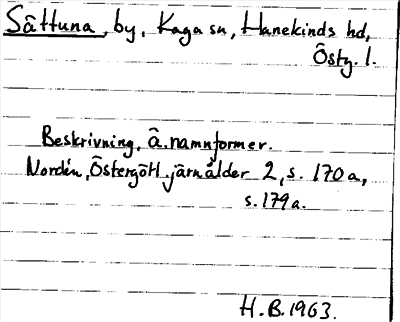 Sättuna, by, Kaga sn, Hanekinds hd,
Östg. l.
Beskrivning, ä. namnformer.
Nordén, Östergötl. järnålder 2, s. 170 a,
s. 179 a.
H.B. 1963.